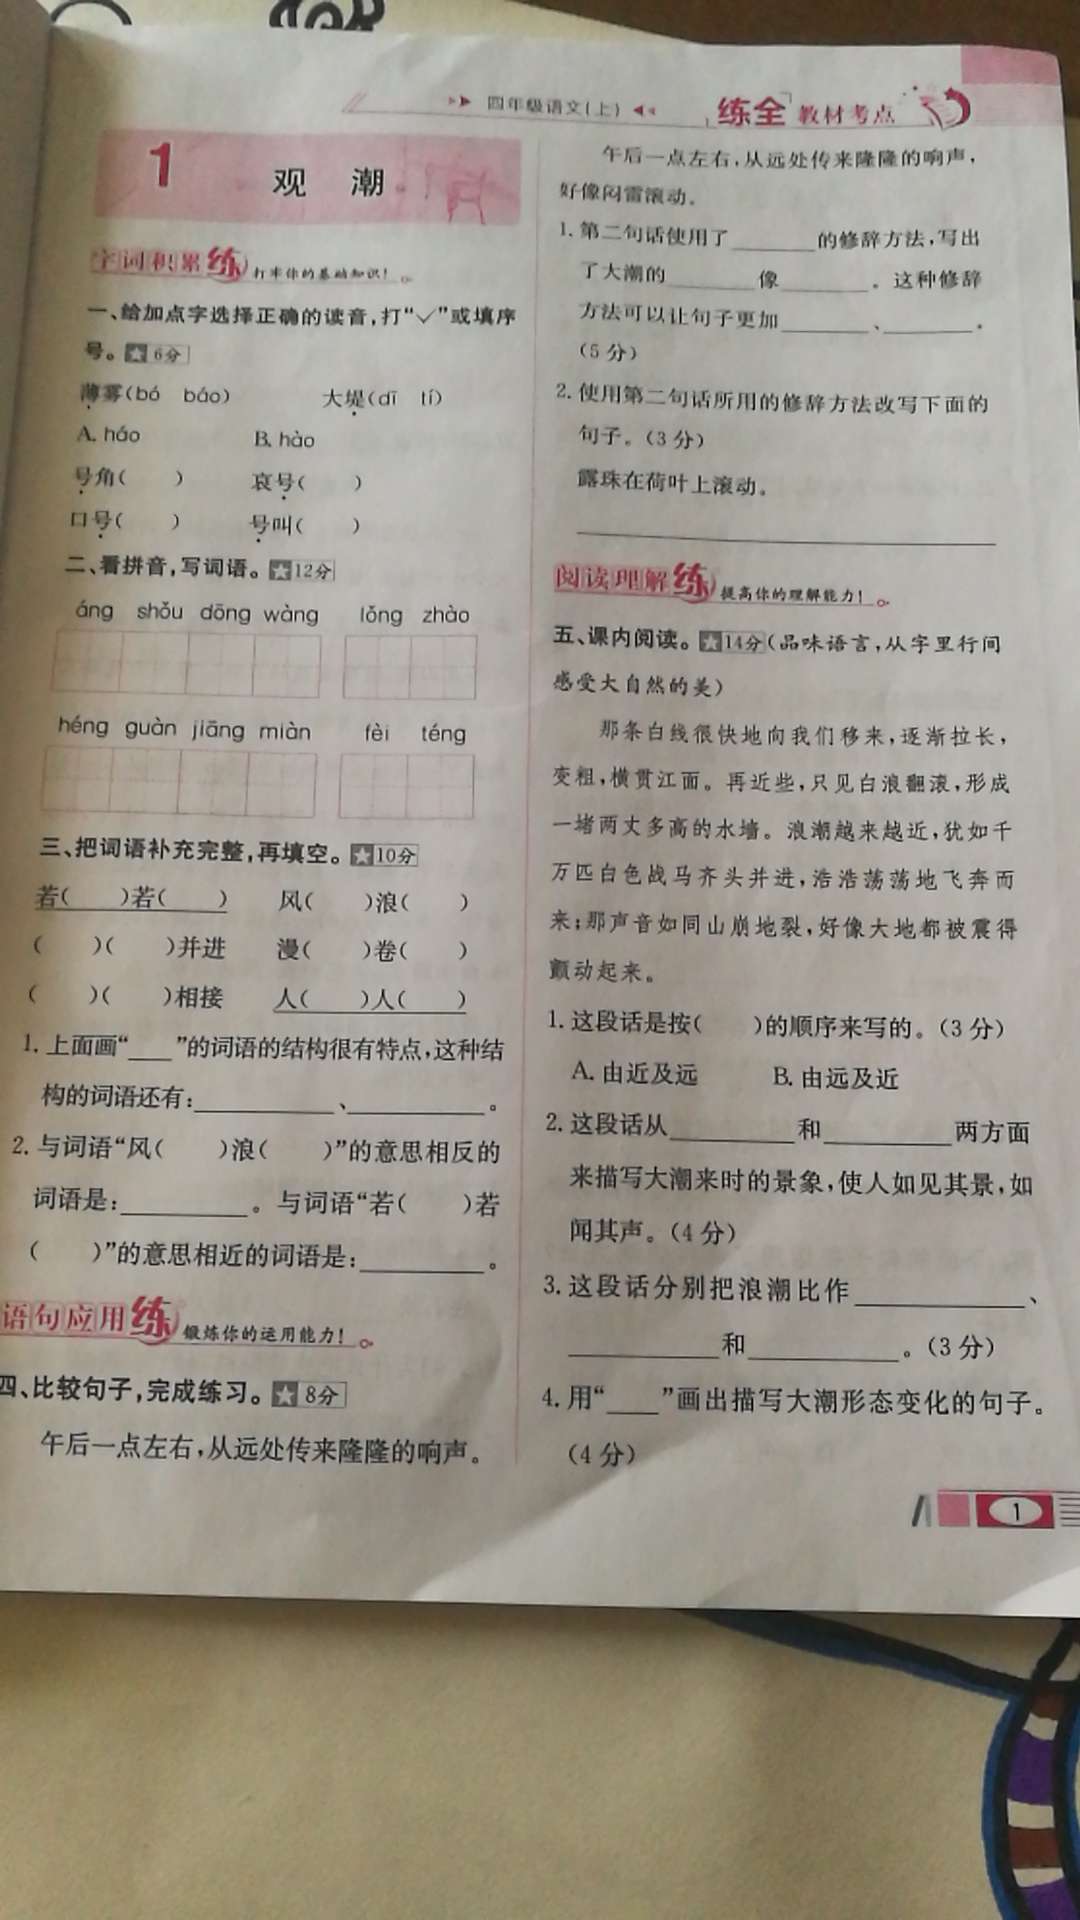 四年级语文(上)
练全 教材考点
1 观 潮
字词积累练 打牢你的基础知识!
一、给加点字选择正确的读音,打“✓”或填序
号。★6分
薄雾(bó báo) 大堤(dī tí)
A. háo B. hào
号角( ) 哀号( )
口号( ) 号叫( )
二、看拼音,写词语。★12分
áng shǒu dōng wàng lǒng zhào
héng guàn jiāng miàn fèi téng
三、把词语补充完整,再填空。★10分
若( )若( ) 风( )浪( )
( )( )并进 漫( )卷( )
( )( )相接 人( )人( )
1. 上面画“___”的词语的结构很有特点,这种结
构的词语还有:__________、__________。
2. 与词语“风( )浪( )”的意思相反的
词语是:__________。与词语“若( )若
( )”的意思相近的词语是:__________。
语句应用练 锻炼你的运用能力!
四、比较句子,完成练习。★8分
午后一点左右,从远处传来隆隆的响声。
午后一点左右,从远处传来隆隆的响声,
好像闷雷滚动。
1. 第二句话使用了______的修辞方法,写出
了大潮的______像______。这种修辞
方法可以让句子更加______、______。
(5分)
2. 使用第二句话所用的修辞方法改写下面的
句子。(3分)
露珠在荷叶上滚动。
阅读理解练 提高你的理解能力!
五、课内阅读。★14分(品味语言,从字里行间
感受大自然的美)
那条白线很快地向我们移来,逐渐拉长,
变粗,横贯江面。再近些,只见白浪翻滚,形成
一堵两丈多高的水墙。浪潮越来越近,犹如千
万匹白色战马齐头并进,浩浩荡荡地飞奔而
来;那声音如同山崩地裂,好像大地都被震得
颤动起来。
1. 这段话是按( )的顺序来写的。(3分)
A. 由近及远 B. 由远及近
2. 这段话从__________和__________两方面
来描写大潮来时的景象,使人如见其景,如
闻其声。(4分)
3. 这段话分别把浪潮比作__________、
__________和__________。(3分)
4. 用“____”画出描写大潮形态变化的句子。
(4分)
1